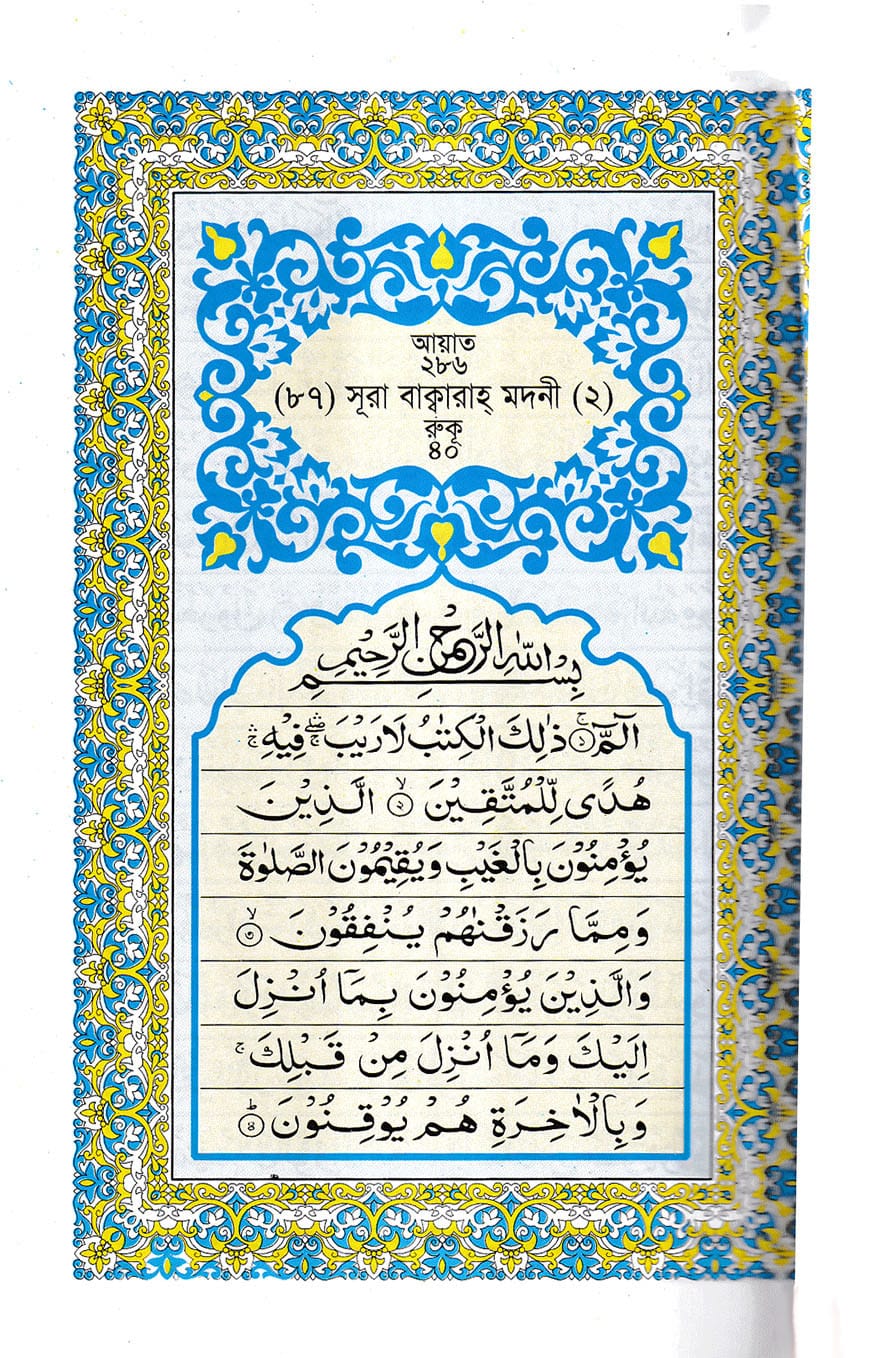 আয়াত
২৮৬
(৮৭) সূরা বাক্বারাহ্ মদনী (২)
রুকূ
৪০
بِسْمِ اللّٰهِ الرَّحْمٰنِ الرَّحِيْمِ
الٓمّٓ ۚ‏﴿১﴾ ذٰلِكَ الْكِتٰبُ لَا رَيْبَ ۛۖۚ فِيْهِ ۛۚ
هُدًى لِّلْمُتَّقِيْنَ ۙ﴿২﴾ الَّذِيْنَ
يُؤْمِنُوْنَ بِالْغَيْبِ وَيُقِيْمُوْنَ الصَّلٰوةَ
وَمِمَّا رَزَقْنٰهُمْ يُنْفِقُوْنَ ۙ﴿৩﴾
وَالَّذِيْنَ يُؤْمِنُوْنَ بِمَآ اُنْزِلَ
اِلَيْكَ وَمَآ اُنْزِلَ مِنْ قَبْلِكَ ۚ
وَبِالْاٰخِرَةِ هُمْ يُوْقِنُوْنَ ؕ﴿৪﴾